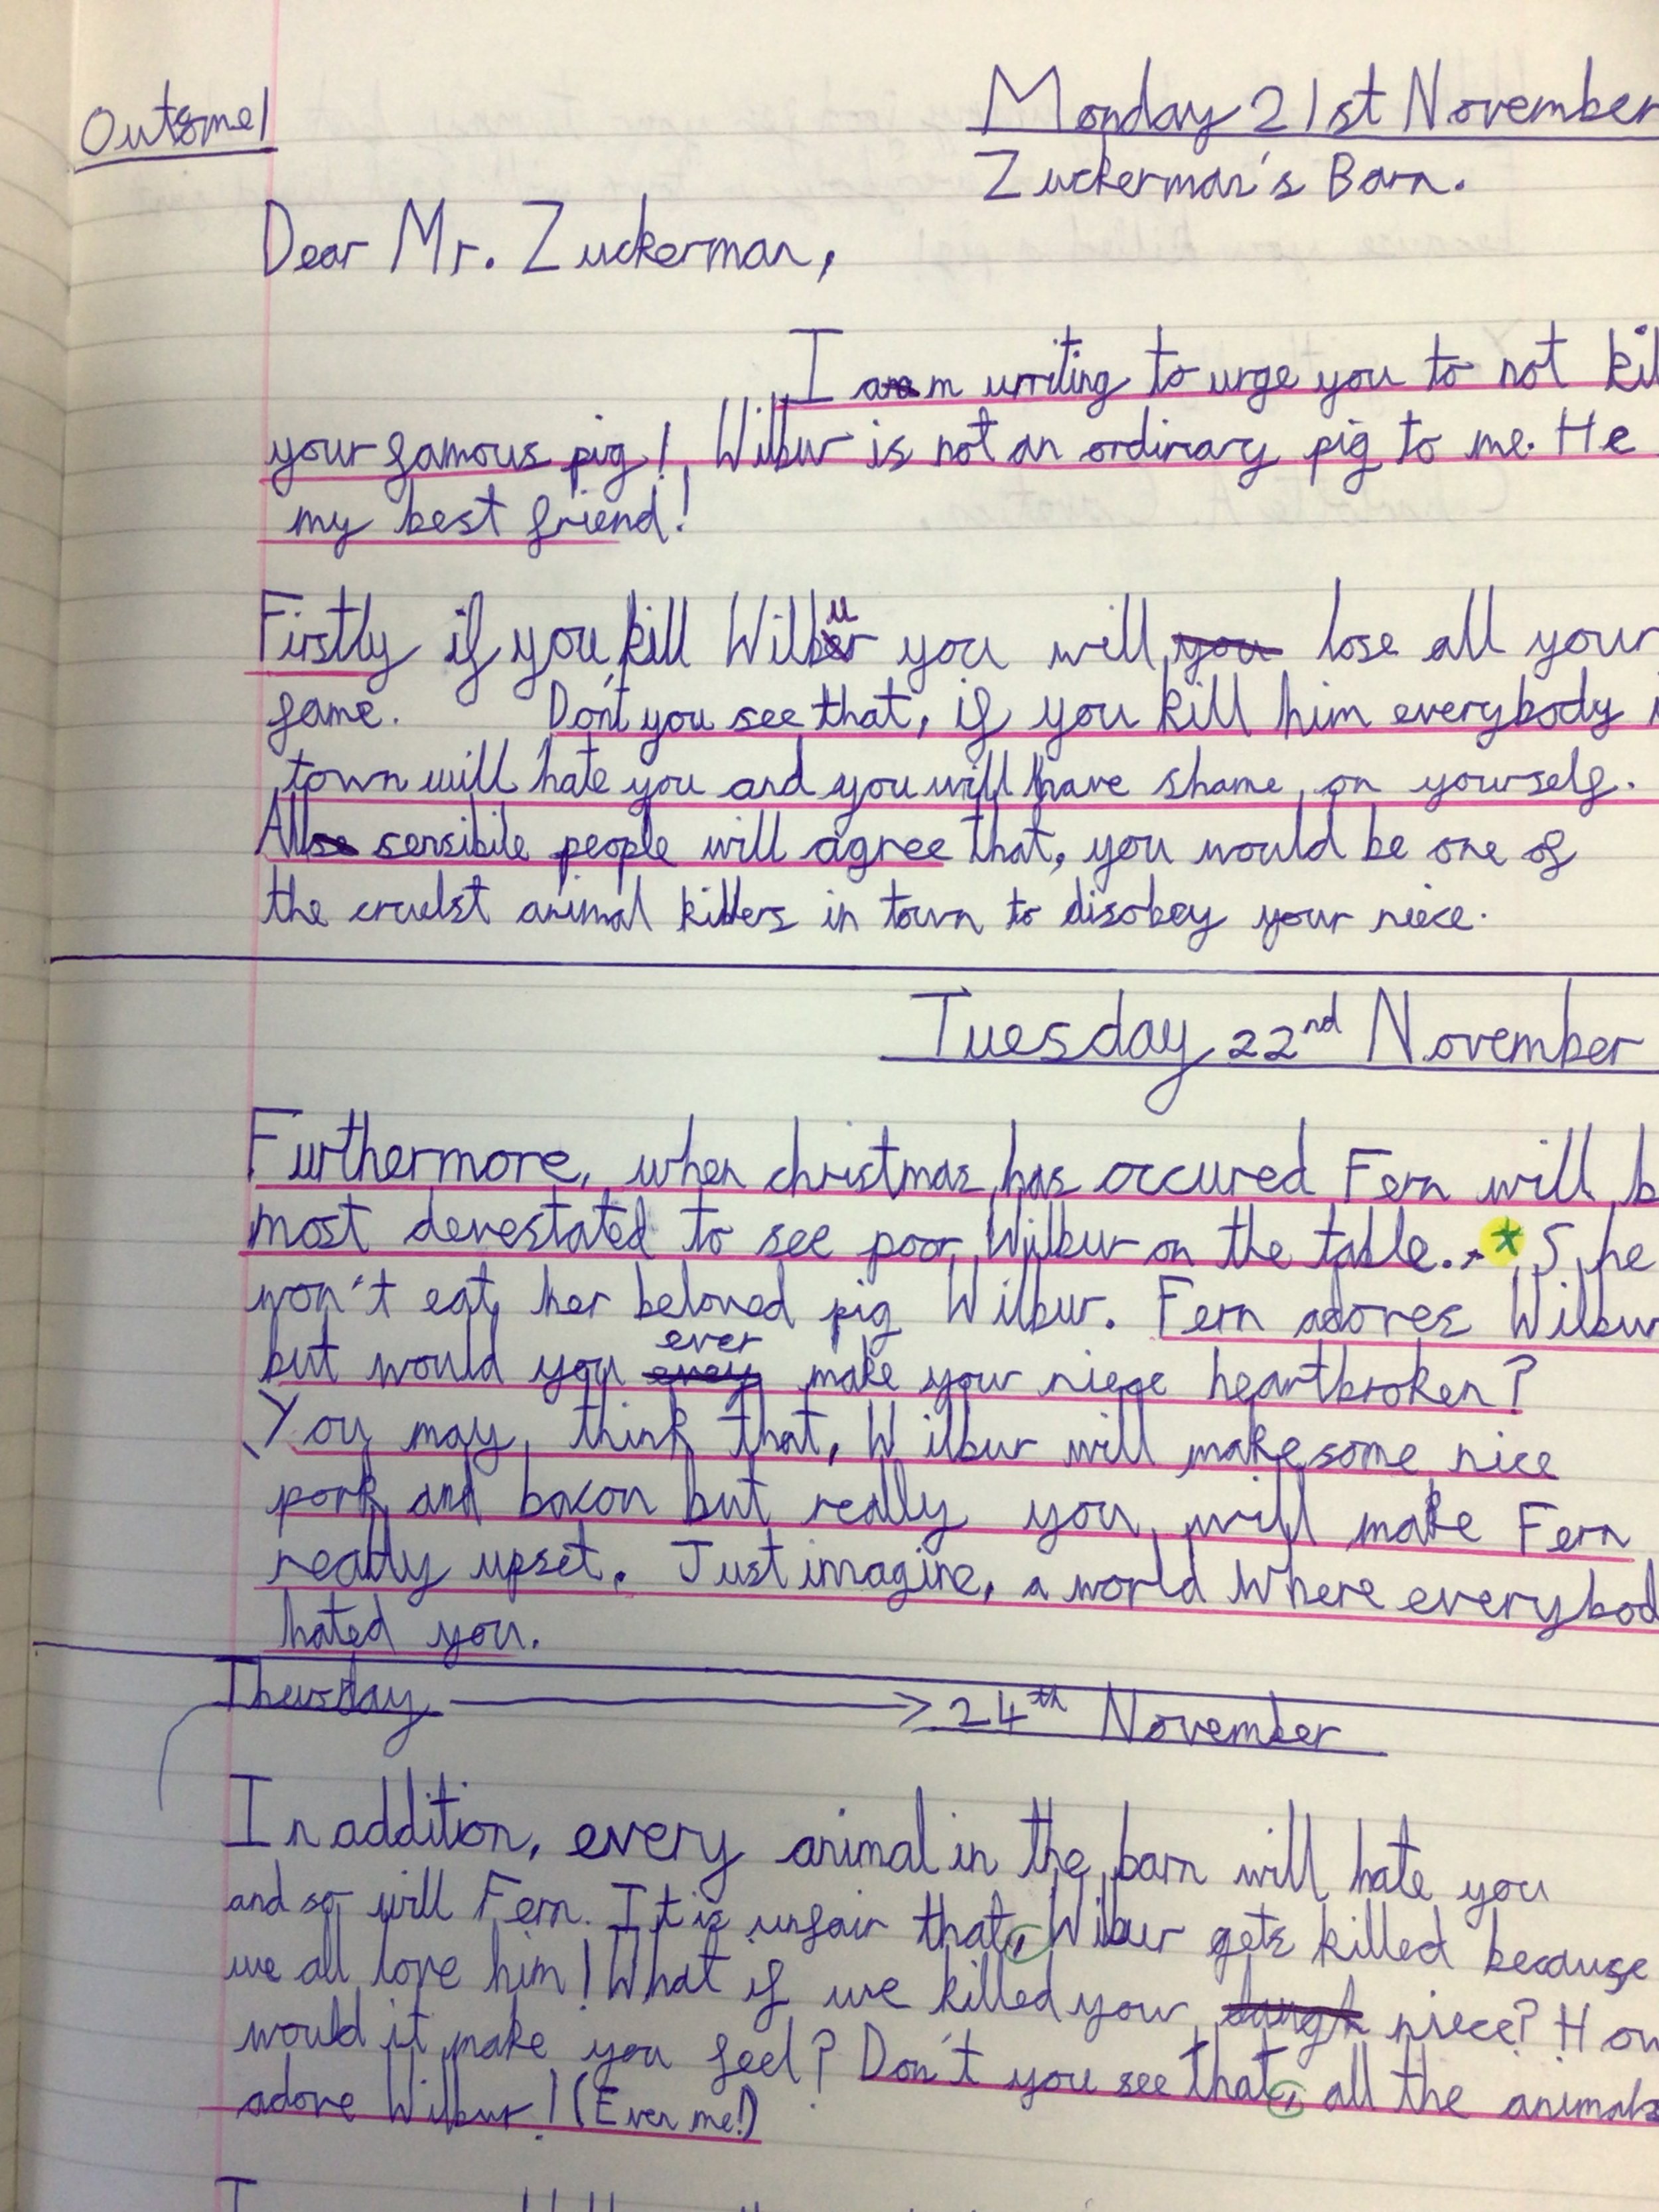 Outcome 1
Monday 21st November
Zuckerman's Barn.
Dear Mr. Zuckerman,
I am writing to urge you to not kil
your famous pig! Wilbur is not an ordinary pig to me. He
my best friend!
Firstly if you kill Wilbur you will you lose all your
fame. Don't you see that, if you kill him everybody i
town will hate you and you will have shame on yourself.
All sensibile people will agree that, you would be one of
the cruelst animal killers in town to disobey your niece.
Tuesday 22nd November
Furthermore, when christmas has occured Fern will b
most devestated to see poor Wilbur on the table. * She
won't eat her beloved pig Wilbur. Fern adores Wilbur
ever
but would you every make your niece heartbroken?
You may think that, Wilbur will make some nice
pork and bacon but really you will make Fern
really upset. Just imagine, a world where everybod
hated you.
Thursday → 24th November
In addition, every animal in the barn will hate you
and so will Fern. It is unfair that, Wilbur gets killed because
we all love him! What if we killed your daugh niece? How
would it make you feel? Don't you see that, all the animals
adore Wilbur! (Even me!)